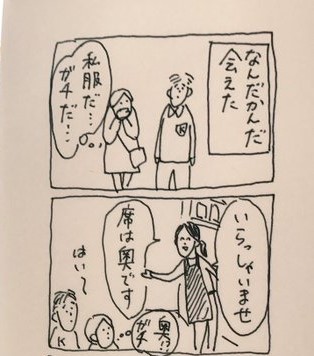 なんだかんだ
会えた
私服だ…
ガチだ…
K
いらっしゃいませ
席は奥です
はい〜
奥!?
ガチ
K